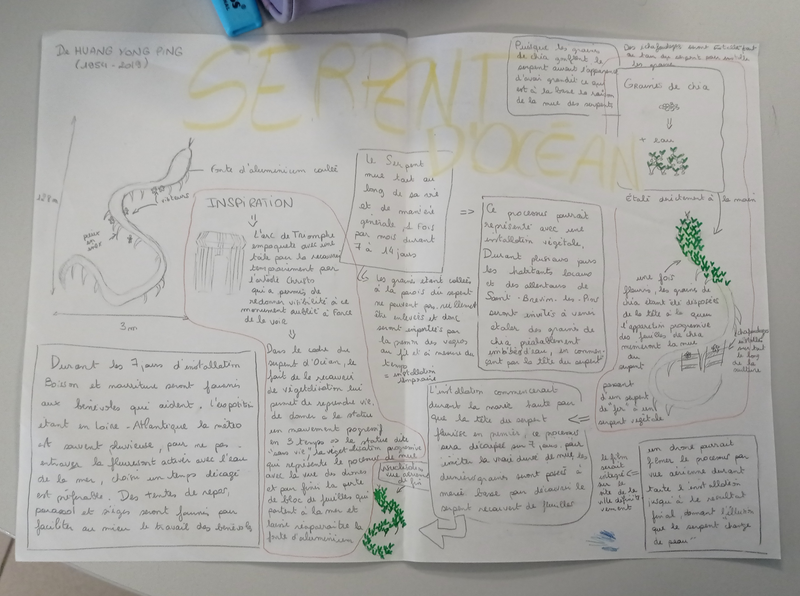 De HUANG YONG PING
(1954-2019)
SERPENT
D'OCÉAN
Fonte d'aluminium coulée
3 m
INSPIRATION
L'arc de Triomphe
empaqueté avec une
toile pour le recouvrir
temporairement par
l'artiste Christo
qui a permis de
redonner visibilité à ce
monument oublié à force
de le voir
Dans le cadre du
serpent d'Océan, le
fait de le recouvrir
de végétalisation lui
permet de reprendre vie,
de donner à la statue
un mouvement
en 3 temps => la statue dite
"sans vie", la végétalisation progressive
qui représente le
avec la vue du
et pour finir la perte
de bloc de feuilles qui
partent à la mer et
laisse réapparaître la
fonte d'aluminium
Le Serpent
mue tout au
long de sa vie
et de manière
générale, 1 fois
par mois durant
7 à 14 jours
=>
Les graines étant collées
à la paroi du serpent
ne peuvent pas
être enlevées et donc
seront emportées par
la force des vagues
au fil et à mesure du
temps
= installation
temporaire
Ce processus pourrait
être représenté avec une
installation végétale.
Durant plusieurs jours
les habitants locaux
et des alentours de
Saint-Brevin-les-Pins
seront invités à venir
étaler des graines de
chia préalablement
imbibées d'eau, en commen-
çant par la tête du serpent
L'installation commencerait
durant la marée haute pour
que la tête du serpent
fleurisse en premier, ce processus
sera décuplé sur 7 jours, pour
imiter la vraie durée de mue, les
dernières graines seront posées à
marée basse pour découvrir le
serpent recouvert de feuilles
Puisque les graines
de chia gonflent le
serpent aurait l'apparence
d'avoir grandit ce qui
est à la base la raison
de la mue des serpents
Des échafaudages seront installés tout
au long du serpent pour
les graines
Graines de chia
+ eau
Étalé directement à la main
une fois
fleuries, les graines de
chia étant disposées
de la tête à la queue
l'apparition progressive
des feuilles de chia
mimeront la mue
du
serpent
passant
d'un serpent
de fer à un
serpent végétal
échafaudages
installés
tout le
long de la
sculpture
Durant les 7 jours d'installation
Boisson et nourriture seront fournis
aux bénévoles qui aident. L'exposition
étant en Loire-Atlantique la météo
est souvent pluvieuse, pour ne pas
entraver la fleuraison activée avec l'eau
de la mer, choisir un temps dégagé
est préférable. Des tentes de repos,
parasol et sièges seront fournis pour
faciliter au mieux le travail des bénévoles
vue aérienne
le film
serait
sur le
site de
la
ville
un drone pourrait
filmer le processus par
vue aérienne durant
toute l'installation
jusqu'à le résultat
final, donnant l'illusion
que le serpent change
de peau